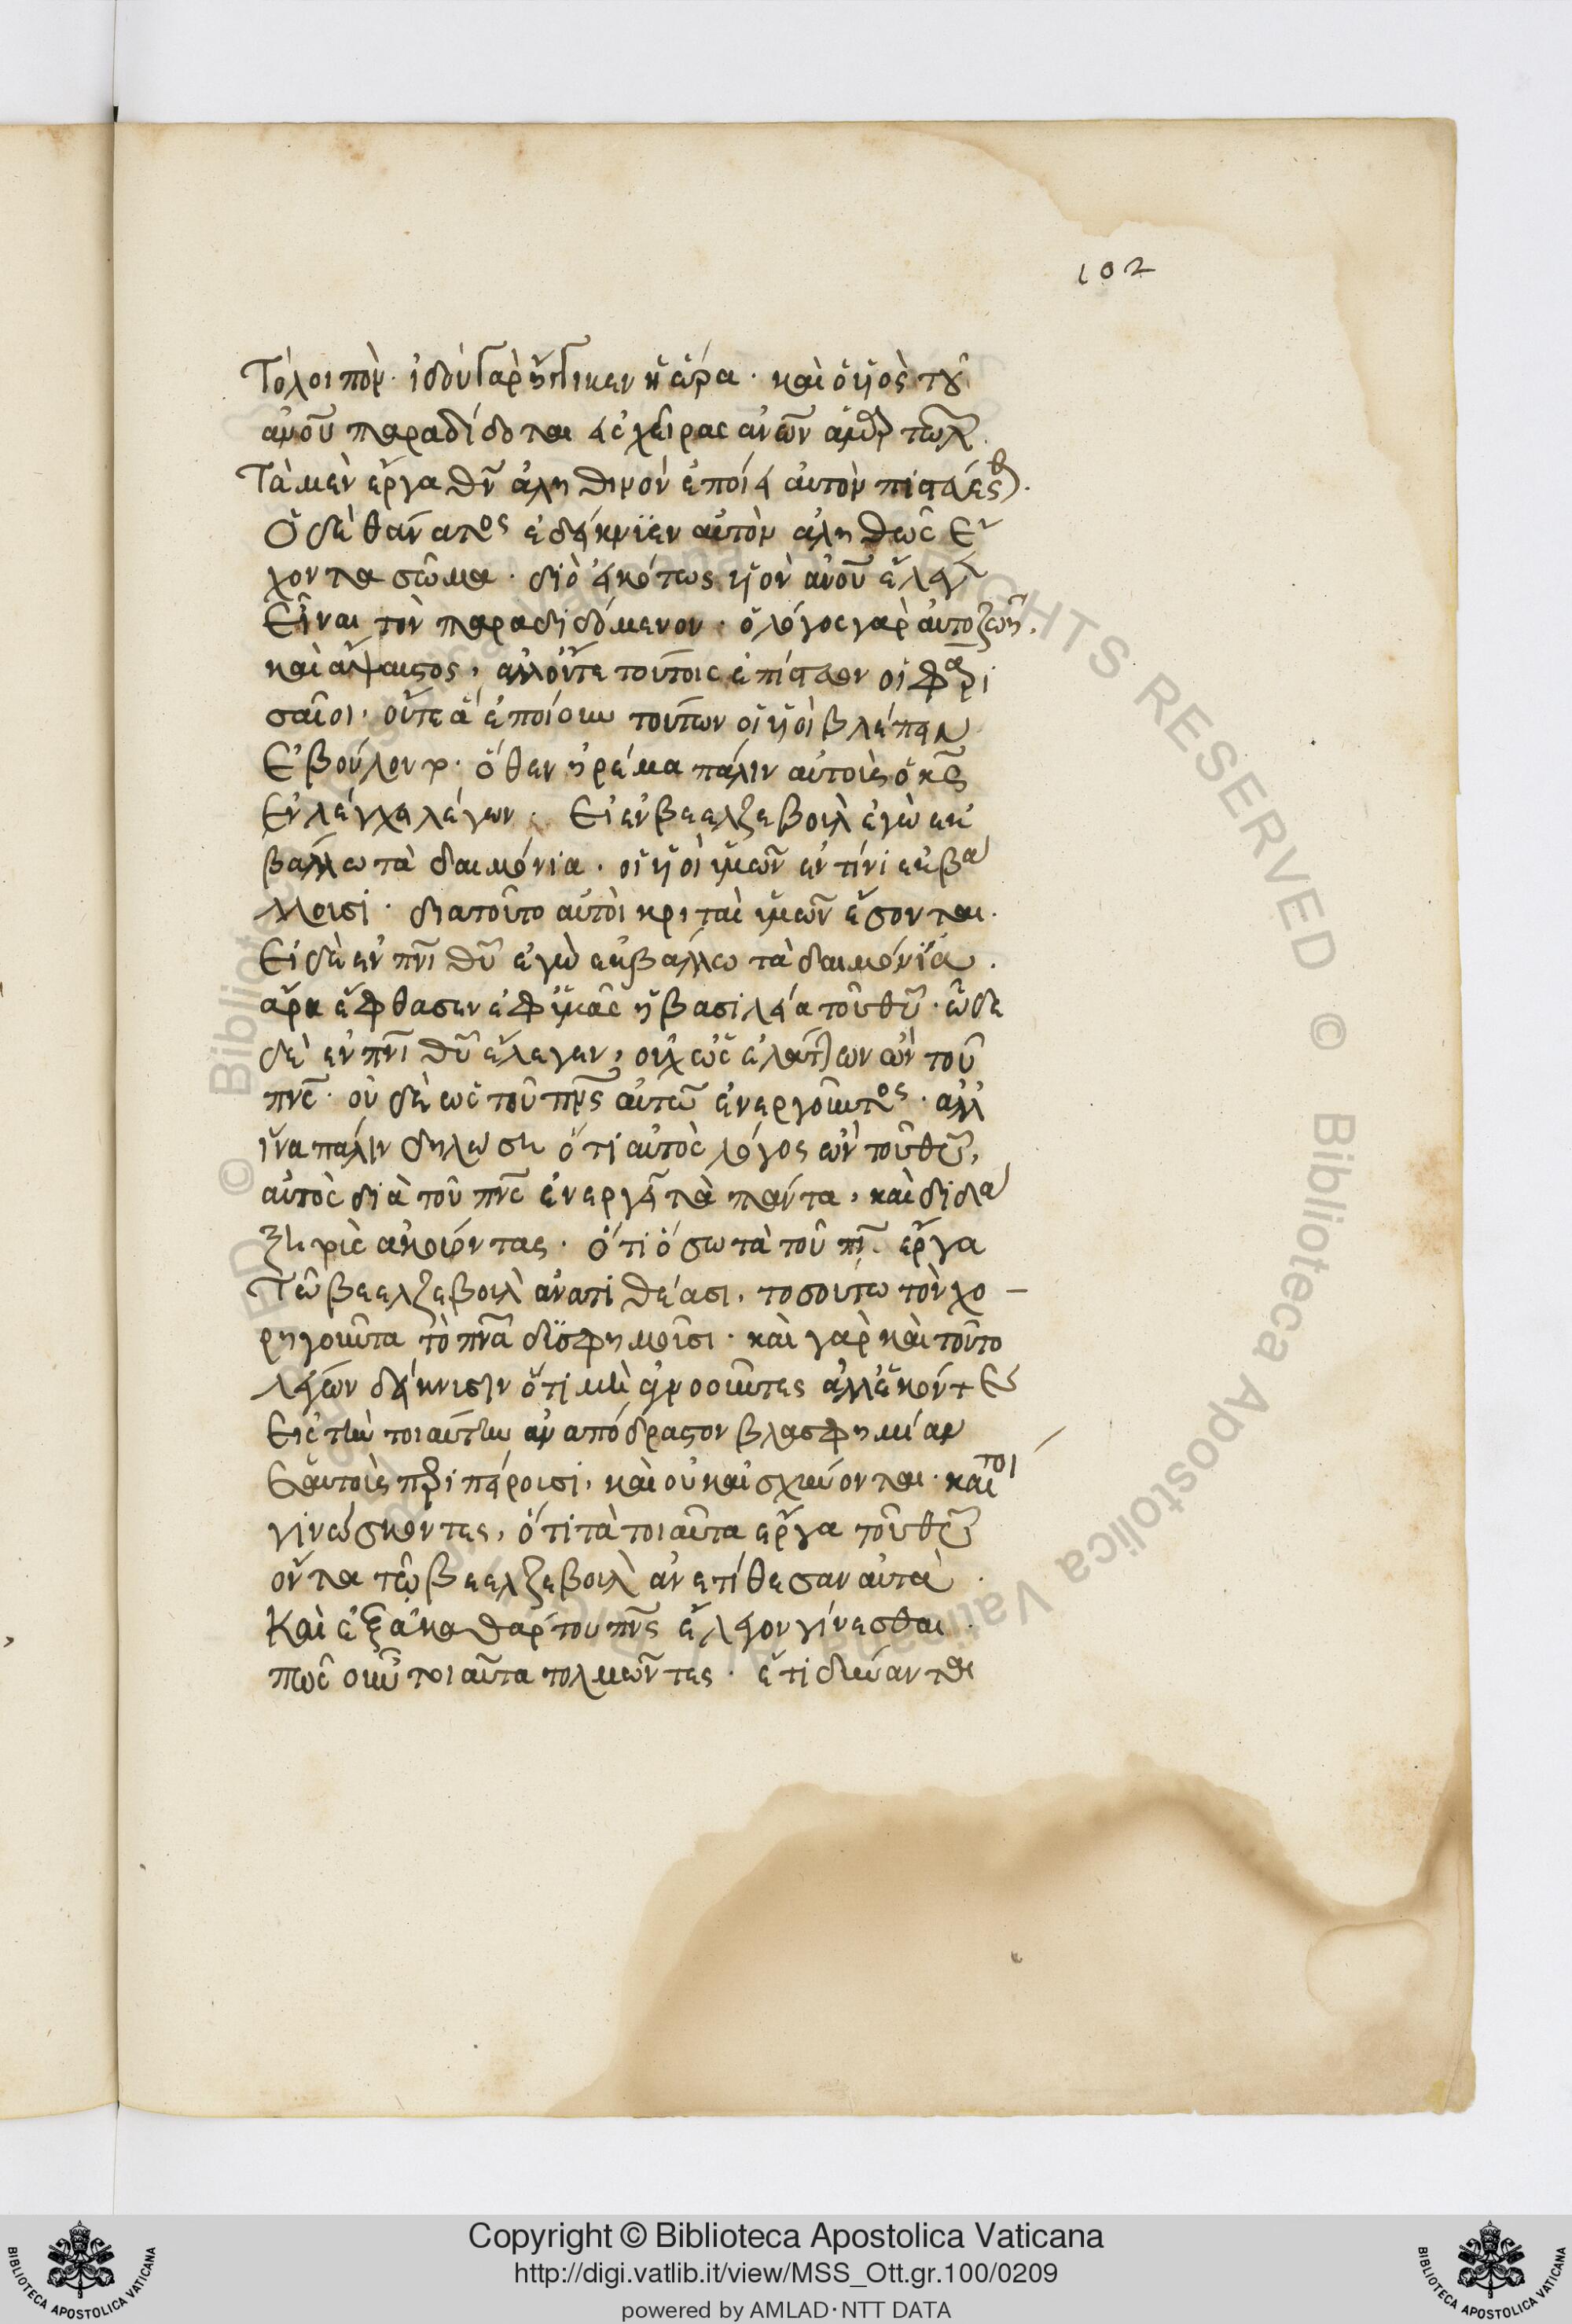 102
Τὸ λοιπὸν· ἰδοὺ γὰρ ἤγγικεν ἡ ὥρα· καὶ ὁ υἱὸς τοῦ
ἀνου παραδίδοται εἰς χεῖρας ἀνων ἁμαρτωλῶν.
Τὰ μὲν ἔργα θν ἀληθινὸν ἐποίει αὐτὸν πιστεύεσθαι.
Ὁ δὲ θάνατος ἐδείκνυεν αὐτὸν ἀληθῶς ἔ
χοντα σῶμα· διὸ εἰκότως υἱὸν ἀνου ἔλεγεν
Εἶναι τὸν παραδιδόμενον· ὁ λόγος γὰρ αὐτοζωή,
καὶ ἄψαυστος, ἀλλ οὔτε τούτοις ἐπίστευον οἱ φαρι
σαῖοι· οὔτε ἃ ἐποίουν τούτων οἱ υἱοὶ βλέπειν
Ἐβούλοντο· ὅθεν ἠρέμα πάλιν αὐτοὺς ὁ κς
Ἐλέγχει λέγων· Εἰ ἐν βεελζεβοὺλ ἐγὼ ἐκ
βάλλω τὰ δαιμόνια· οἱ υἱοὶ ὑμῶν ἐν τίνι ἐκβά
λλουσι· διατοῦτο αὐτοὶ κριταὶ ὑμῶν ἔσονται.
Εἰ δὲ ἐν πνι θυ ἐγὼ ἐκβάλλω τὰ δαιμόνια.
ἄρα ἔφθασεν ἐφ ὑμᾶς ἡ βασιλεία τοῦ θυ· ὧδε
δὲ ἐν πνι θυ ἔλεγεν, οὐχ ὡς ἐλάττων ὢν τοῦ
πνς· οὐδὲ ὡς τοῦ πνς αὐτῶ ἐνεργοῦντος· ἀλλ
ἵνα πάλιν δηλώση ὅτι αὐτὸς λόγος ὢν τοῦ θυ,
αὐτὸς διὰ τοῦ πνς ἐνεργεῖ τὰ πάντα, καὶ διδά
ξη τοὺς ἀκούοντας· ὅτι ὅσω τὰ τοῦ πν. ἔργα
Τῶ βεελζεβοὺλ ἀνατιθέασι, τοσούτω τὸν χο –
ρηγοῦντα τὸ πνα δυσφημοῦσι· καὶ γὰρ καὶ τοῦτο
λέγων δείκνυσιν ὅτι μὴ ἀγνοοῦντες ἀλλ ἑκόντες
Εἰς τὴν τοιαύτην ἀναπόδραστον βλασφημίαν
Ἑαυτοὺς περιπείρουσι, καὶ οὐκ αἰσχύνονται· καίτοι
γινώσκοντες, ὅτι τὰ τοιαῦτα ἔργα τοῦ θυ
ὄντα τῶ βεελζεβοὺλ ἀνετίθεσαν αὐτὰ.
Καὶ ἐξ ἀκαθάρτου πνς ἔλεγον γίνεσθαι.
πῶς οὖν τοιαῦτα τολμῶντες· ἔτι δύνανται
Copyright © Biblioteca Apostolica Vaticana
http://digi.vatlib.it/view/MSS_Ott.gr.100/0209
powered by AMLAD·NTT DATA